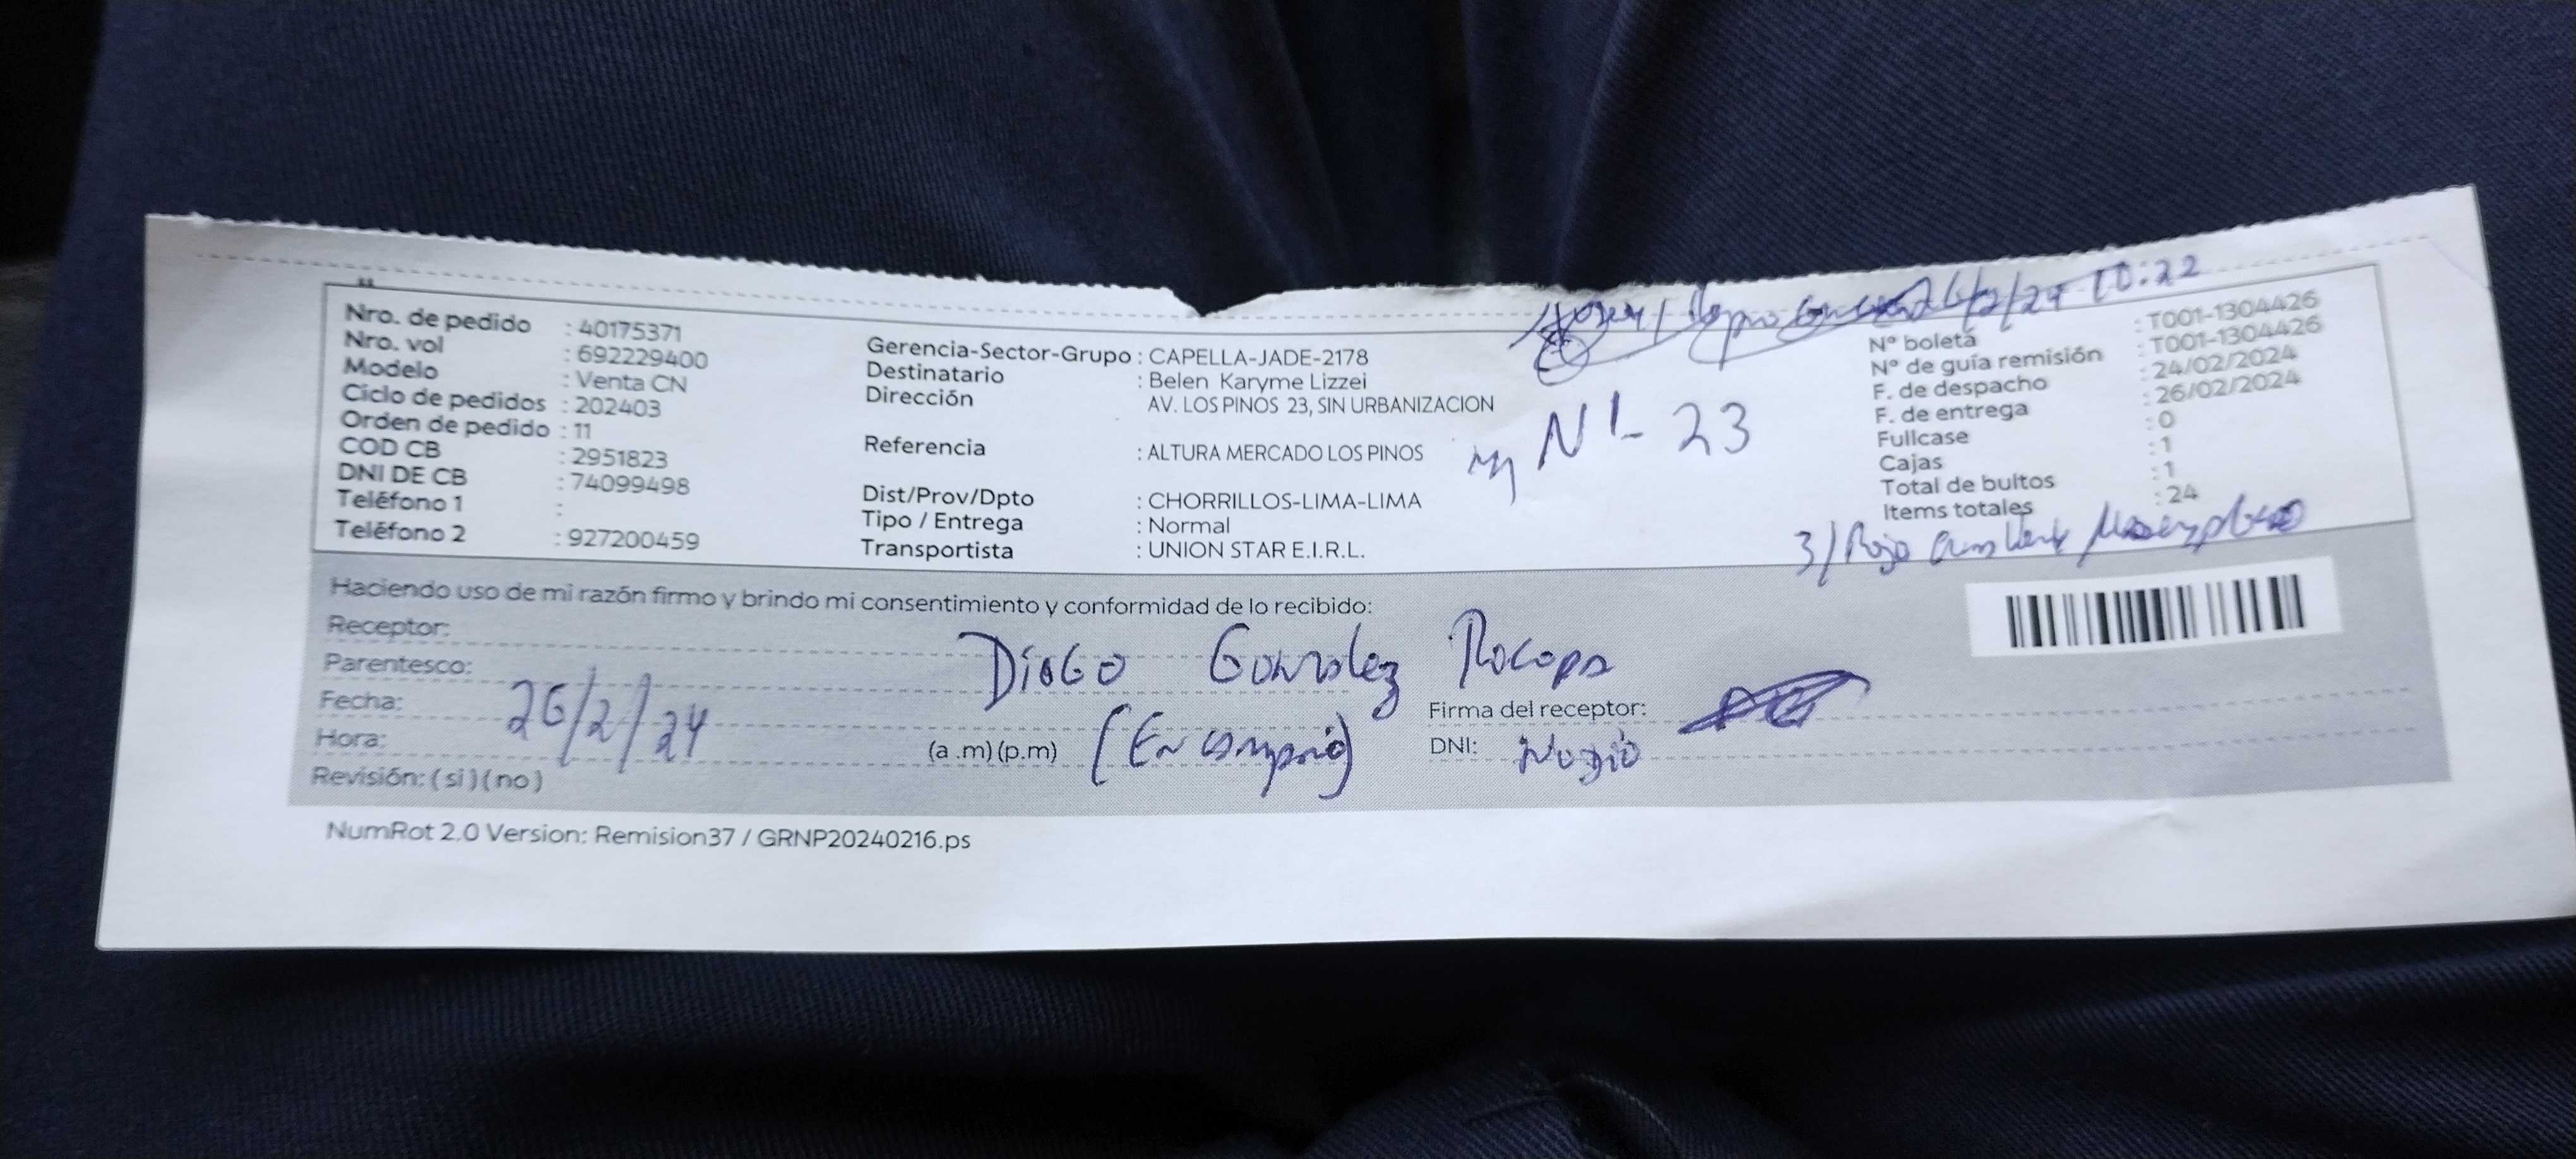 26/2/24 10:22
Nro. de pedido : 40175371
Nro. vol : 692229400
Modelo : Venta CN
Ciclo de pedidos : 202403
Orden de pedido : 11
COD CB : 2951823
DNI DE CB : 74099498
Teléfono 1 :
Teléfono 2 : 927200459
Gerencia-Sector-Grupo : CAPELLA-JADE-2178
Destinatario : Belen Karyme Lizzei
Dirección AV. LOS PINOS 23, SIN URBANIZACION
Referencia : ALTURA MERCADO LOS PINOS
Dist/Prov/Dpto : CHORRILLOS-LIMA-LIMA
Tipo / Entrega : Normal
Transportista : UNION STAR E.I.R.L.
23
N° boleta : T001-1304426
N° de guía remisión : T001-1304426
F. de despacho : 24/02/2024
F. de entrega : 26/02/2024
Fullcase : 0
Cajas : 1
Total de bultos : 1
Items totales : 24
3/ Rejo
Haciendo uso de mi razón firmo y brindo mi consentimiento y conformidad de lo recibido:
Receptor: Diego Gonzalez
Parentesco:
Fecha: 26/2/24
Firma del receptor:
Hora: (a .m) (p.m)
DNI: No dio
Revisión: ( si ) ( no )
NumRot 2.0 Version: Remision37 / GRNP20240216.ps